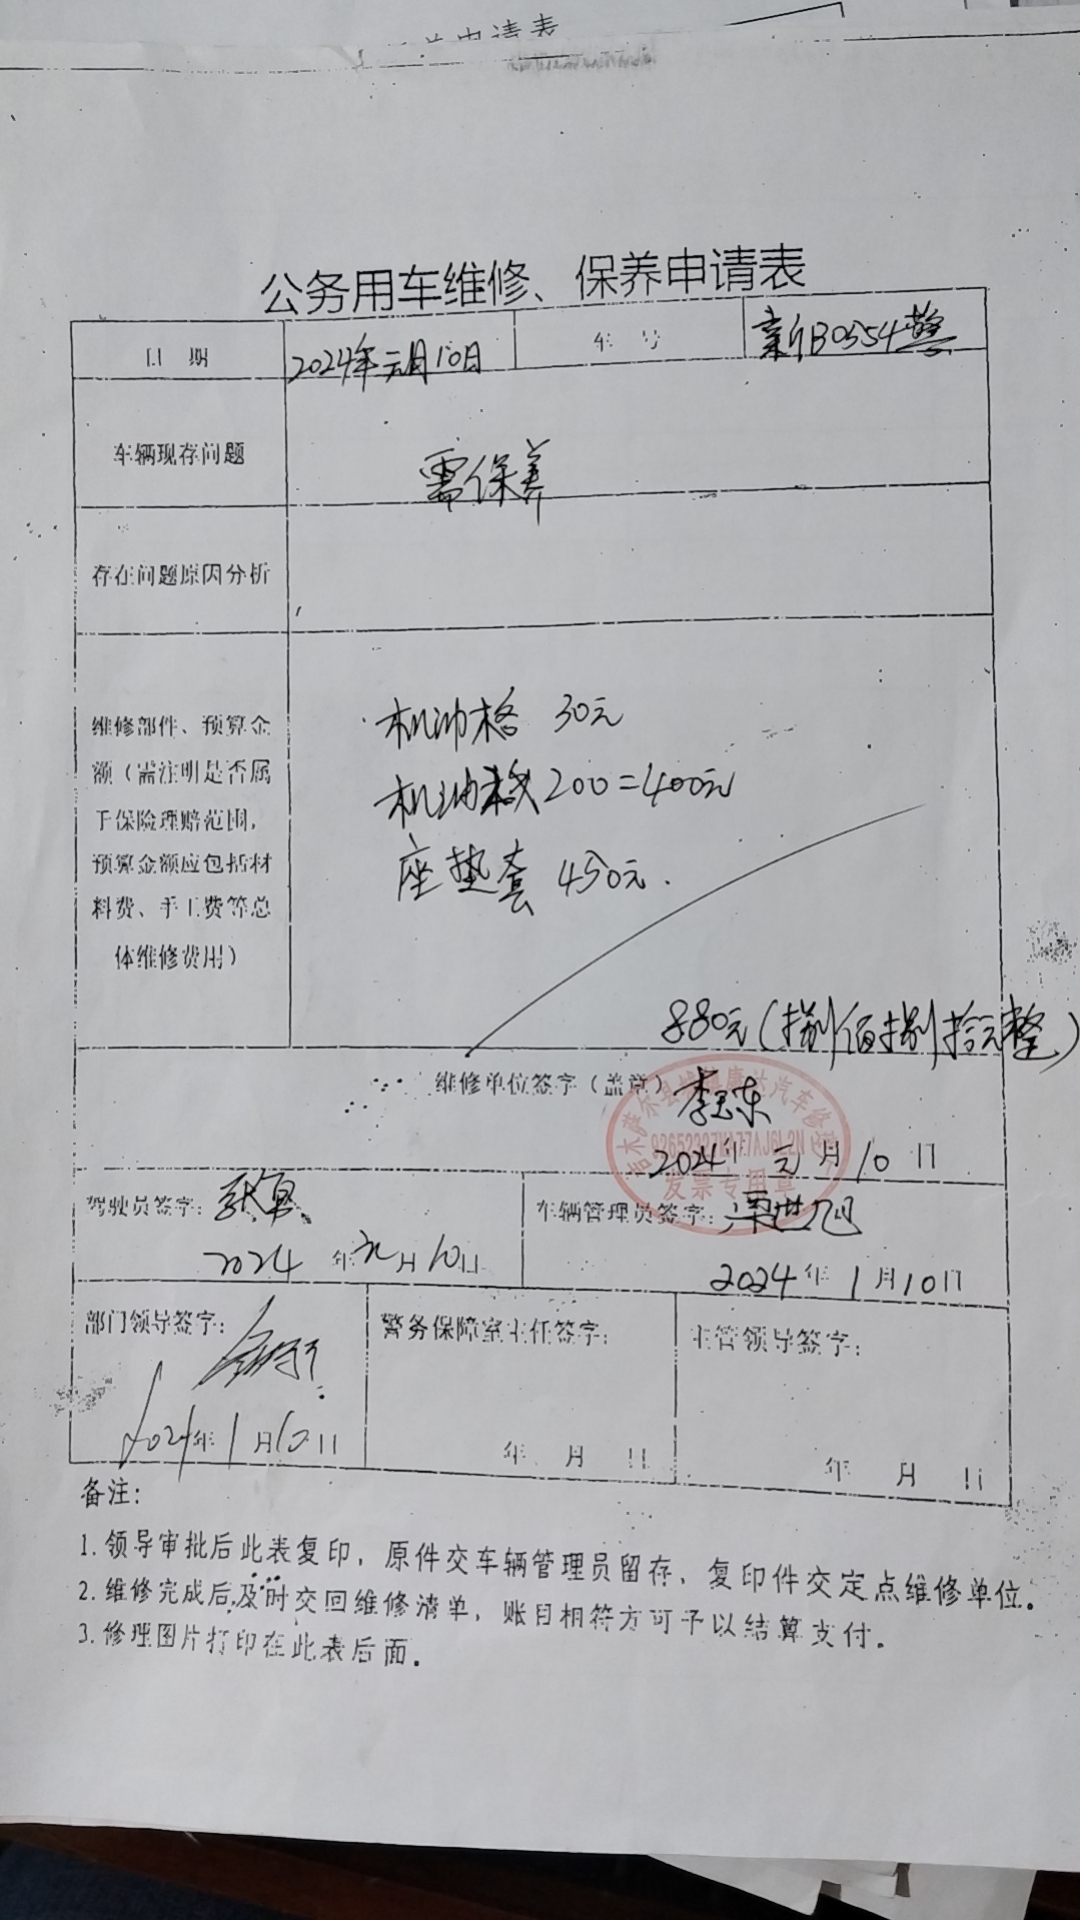 公务用车维修、保养申请表
日 期 2024年元月10日 车 号 新B0554警
车辆现存问题 需保养
存在问题原因分析
维修部件、预算金
额（需注明是否属
于保险理赔范围，
预算金额应包括材
料费、手工费等总
体维修费用）
机油格 30元
机油 200=400元
座垫套 450元.
880元(捌佰捌拾元整)
维修单位签字（盖章）
发票专用章
2024年 元月10日
驾驶员签字:
2024年元月10日
车辆管理员签字:
2024年1月10日
部门领导签字:
2024年1月10日
警务保障室主任签字:
年 月 日
主管领导签字:
年 月 日
备注:
1.领导审批后此表复印，原件交车辆管理员留存、复印件交定点维修单位。
2.维修完成后及时交回维修清单，账目相符方可予以结算支付。
3.修理图片打印在此表后面。